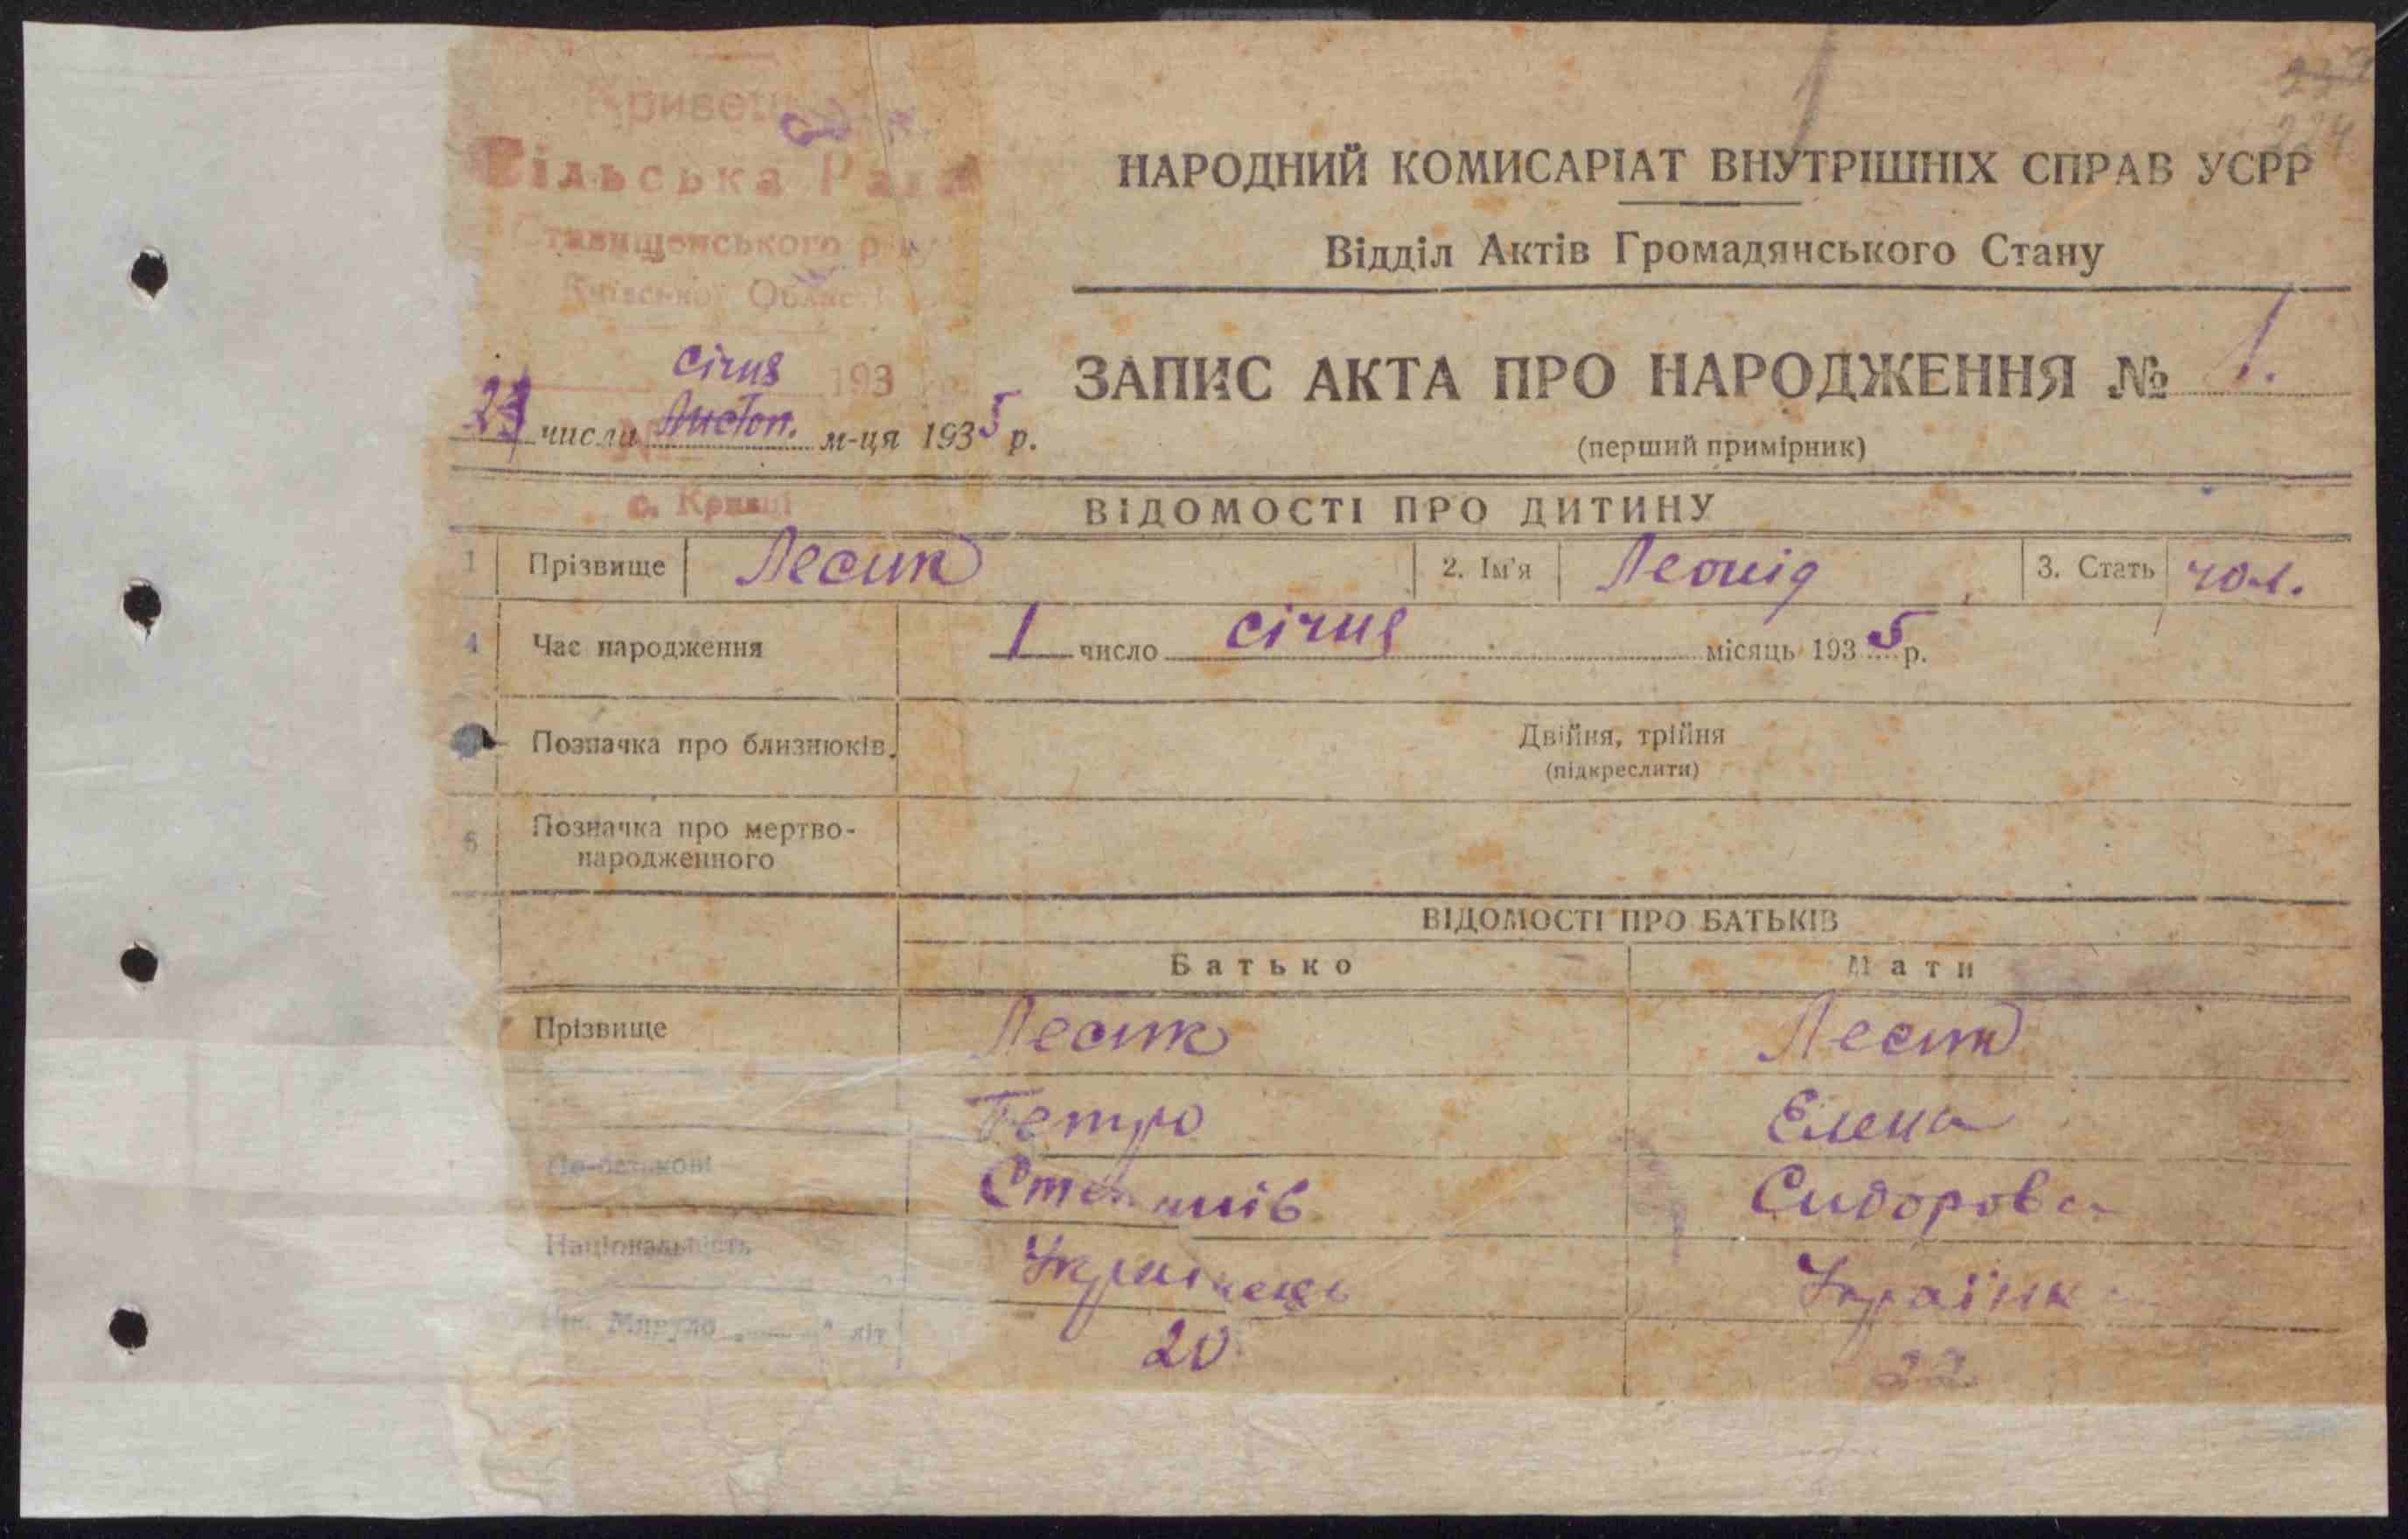 224
Сільська Рада
Ставищенського р-ну
Київської Області
січня 193
числа Листоп. м-ця 1935 р.
с. Кривці
НАРОДНИЙ КОМИСАРІАТ ВНУТРІШНІХ СПРАВ УСРР
Відділ Актів Громадянського Стану
ЗАПИС АКТА ПРО НАРОДЖЕННЯ № 1.
(перший примірник)
ВІДОМОСТІ ПРО ДИТИНУ
1 Прізвище Лесик 2. Ім'я Леонід 3. Стать чол.
4 Час народження 1 число січня місяць 1935 р.
Позначка про близнюків Двійня, трійня
(підкреслити)
6 Позначка про мертво-
народженного
ВІДОМОСТІ ПРО БАТЬКІВ
Батько Мати
Прізвище Лесик Лесик
Петро Елена
По-батькові Степанів Сидорова
Національність Українець Українка
Минуло " " літ 20 22